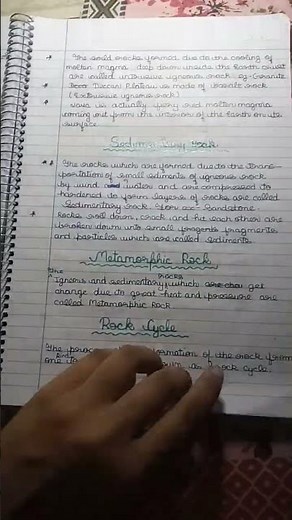 The solid rocks formed due to the cooling of
molten magma deep down inside the Earth crust
are called intrusive igneous rock eg-Granite
Deccan Plateau is made of basalt rock
(Extrusive igneous rock)
Lava is actually very red molten magma
coming out from the interior of the Earth on its
surface
Sedimentary Rock
The rocks which are formed due to the trans-
portation of small sediments of igneous rock
by wind and water and are compressed to
hardened to form layers of rocks are called
Sedimentary rock. For ex: Sandstone.
Rocks roll down, crack and hit each other are
broken down into small fragments
and particles which are called sediments
Metamorphic Rock
The rocks
Igneous and sedimentary which get
change due to great heat and pressure are
called Metamorphic Rock
Rock Cycle
The formation of the rock from
one to rock cycle"